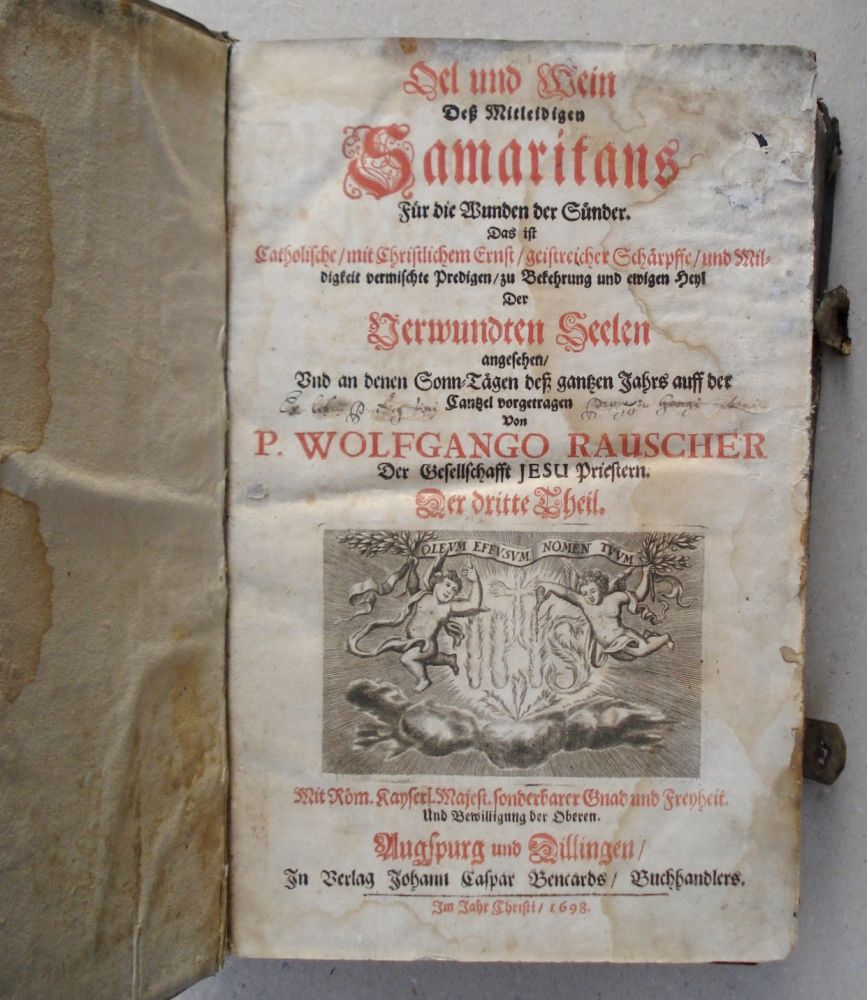 Oel und Wein
Deß Mitleidigen
Samaritans
Für die Wunden der Sünder.
Das ist
Catholische/mit Christlichem Ernst/geistreicher Schärpffe/und Mil-
digkeit vermischte Predigen/zu Bekehrung und ewigen Heyl
Der
Verwundten Seelen
angesehen/
Vnd an denen Sonn-Tägen deß gantzen Jahrs auff der
Cantzel vorgetragen
Von
P. WOLFGANGO RAUSCHER
Der Gesellschafft JESU Priestern.
Der dritte Theil.
OLEVM EFFVSVM NOMEN TVVM
IHS
Mit Röm. Kayserl. Majest. sonderbarer Gnad und Freyheit.
Und Bewilligung der Oberen.
Augspurg und Dillingen/
In Verlag Johann Caspar Bencards/ Buchhandlers.
Im Jahr Christi/ 1698.